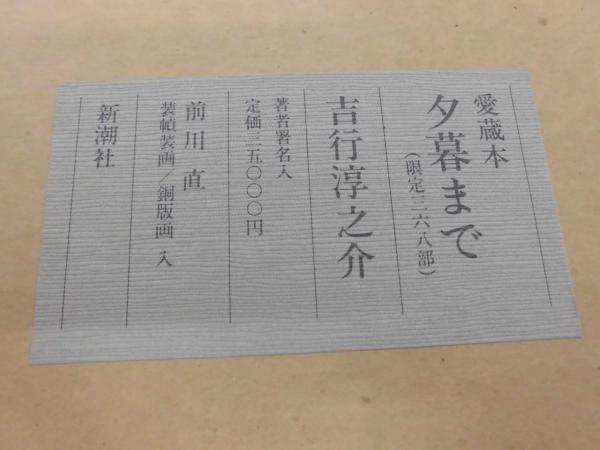 愛蔵本
夕暮まで
(限定三六八部)
吉行淳之介
著者署名入
定価三五〇〇〇円
前川直
装幀装画/銅版画 入
新潮社